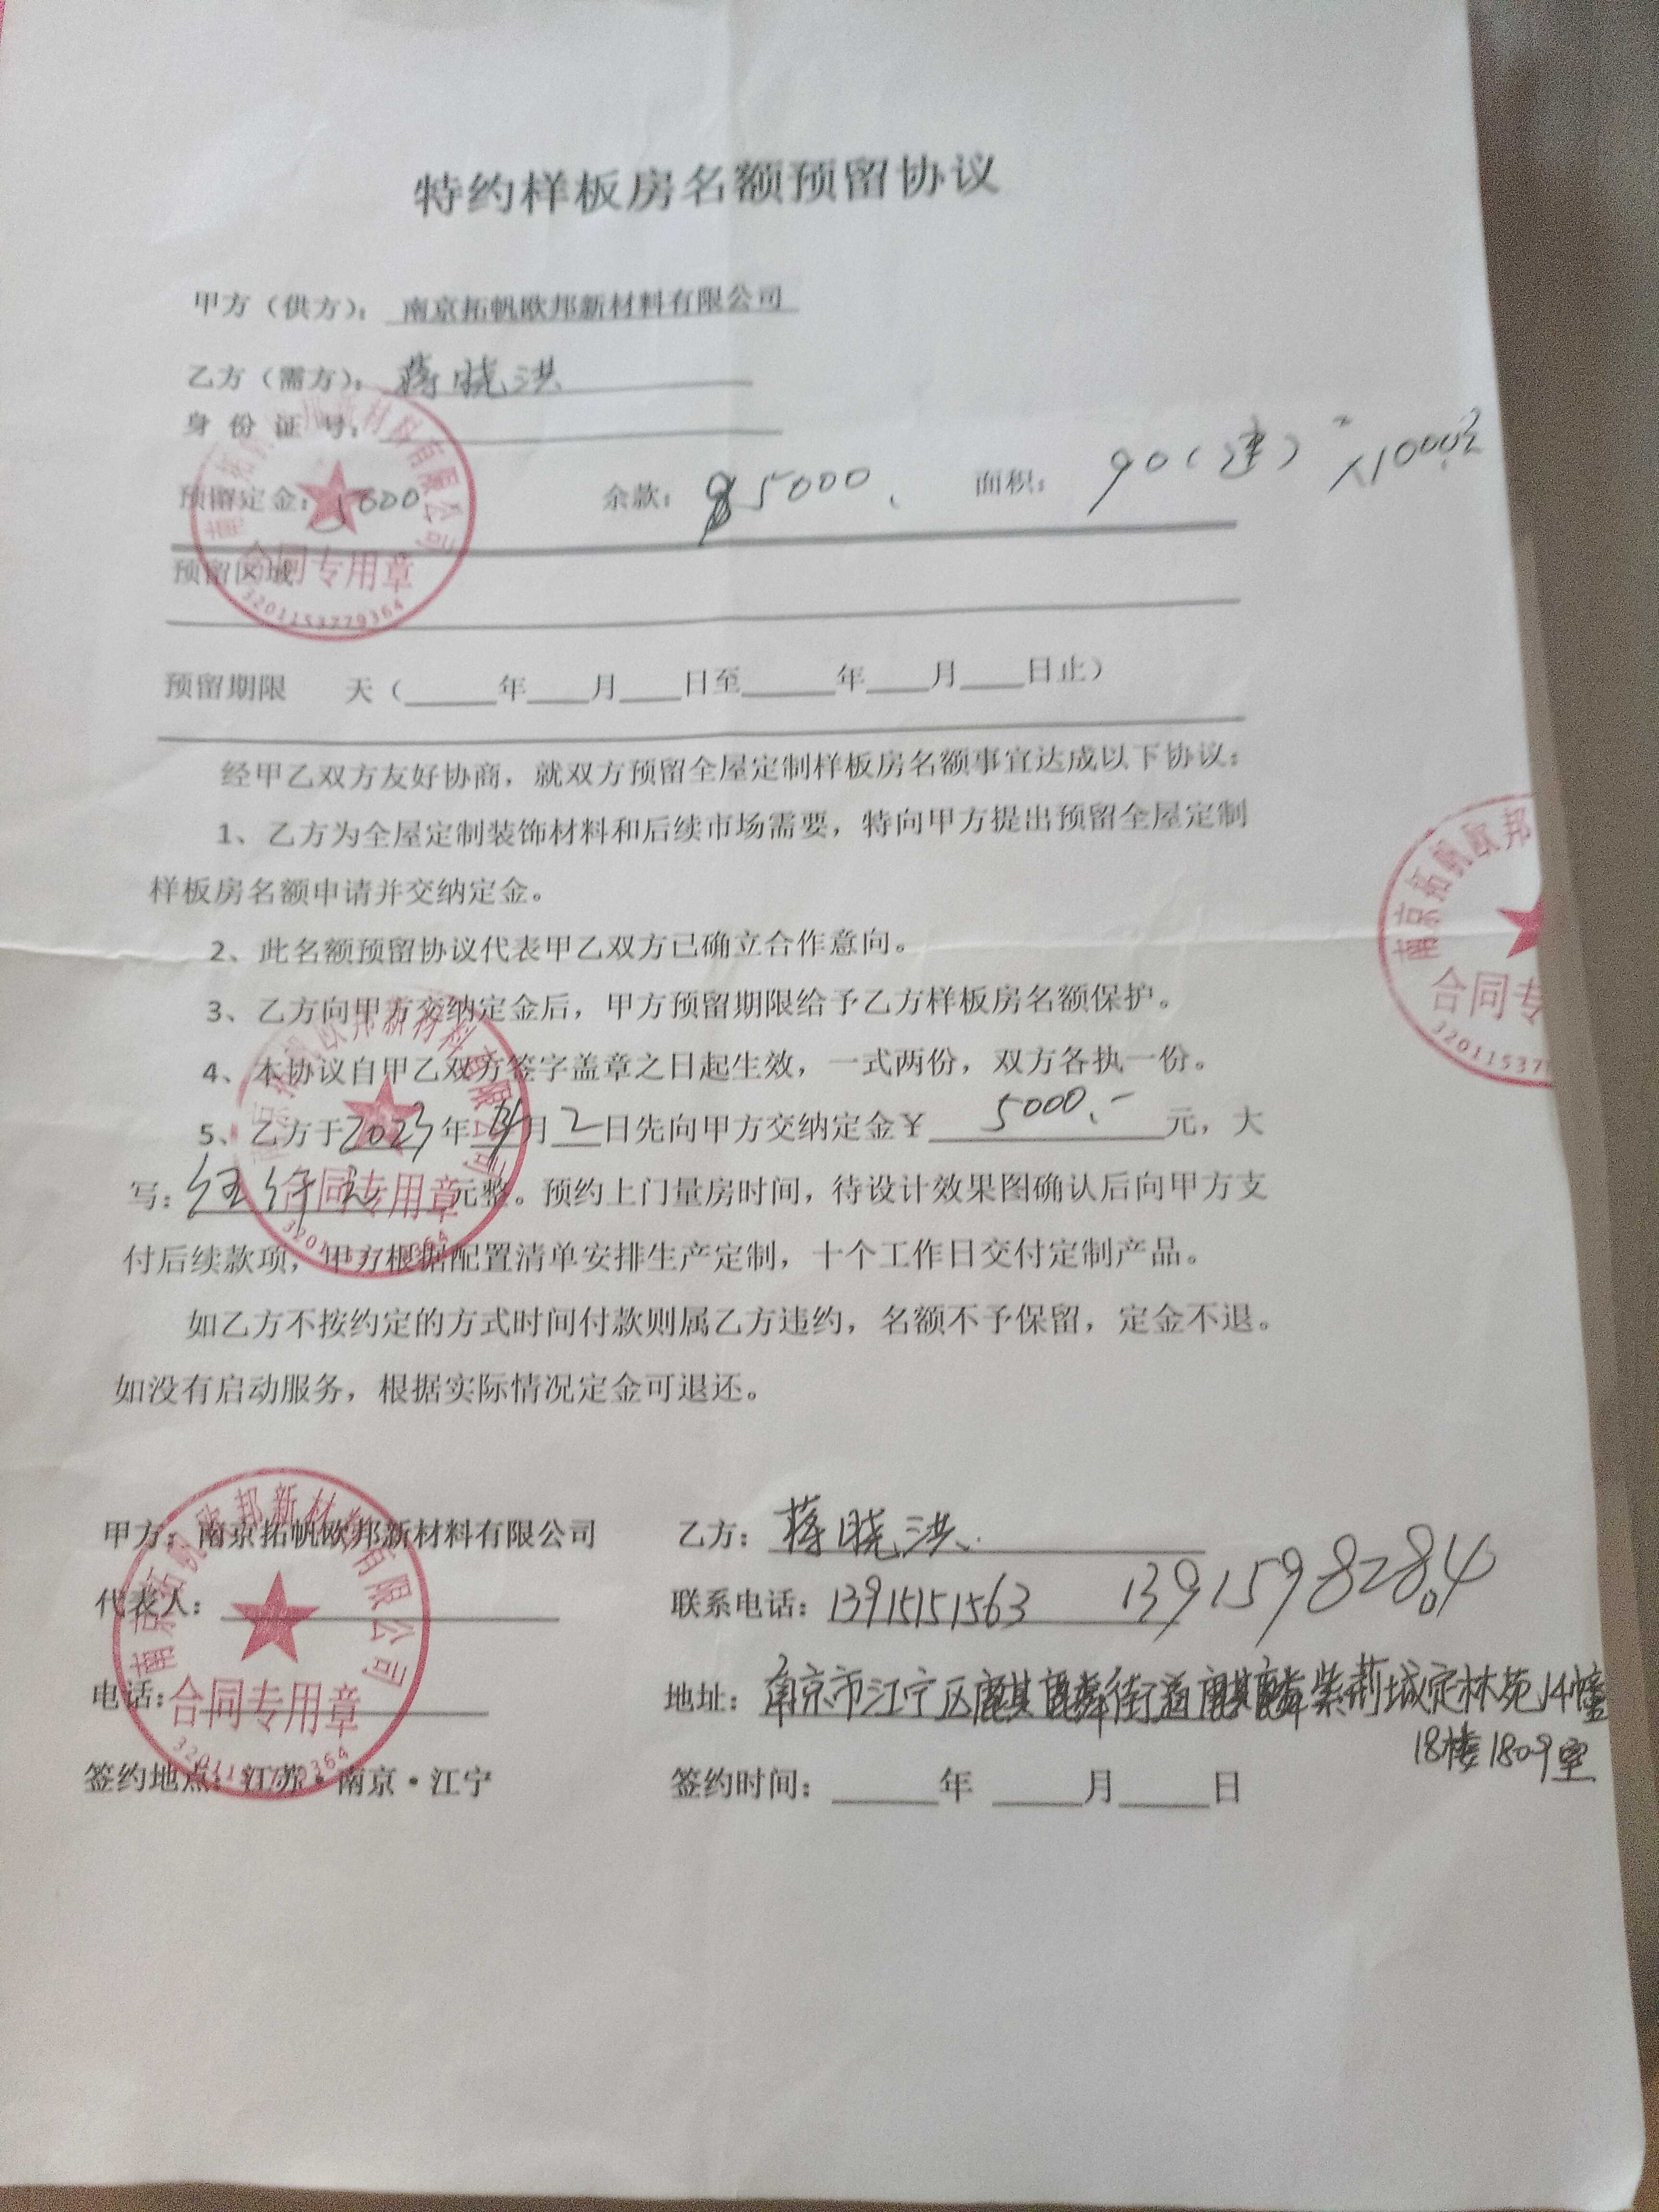 特约样板房名额预留协议
甲方（供方）：南京拓帆欧邦新材料有限公司
乙方（需方）：蒋晓洪
身份证号：
预留定金：5000 余款：85000、 面积：90（建） ×1000元
预留区域
预留期限 天（____年____月____日至____年____月____日止）
经甲乙双方友好协商，就双方预留全屋定制样板房名额事宜达成以下协议：
1、乙方为全屋定制装饰材料和后续市场需要，特向甲方提出预留全屋定制
样板房名额申请并交纳定金。
2、此名额预留协议代表甲乙双方已确立合作意向。
3、乙方向甲方交纳定金后，甲方预留期限给予乙方样板房名额保护。
4、本协议自甲乙双方签字盖章之日起生效，一式两份，双方各执一份。
5、乙方于2023年 月2日先向甲方交纳定金￥5000.-元，大
写：伍仟元 元整。预约上门量房时间，待设计效果图确认后向甲方支
付后续款项，甲方根据配置清单安排生产定制，十个工作日交付定制产品。
如乙方不按约定的方式时间付款则属乙方违约，名额不予保留，定金不退。
如没有启动服务，根据实际情况定金可退还。
甲方：南京拓帆欧邦新材料有限公司 乙方：蒋晓洪
代表人： 联系电话：13915151563 13915982804
电话： 地址：南京市江宁区麒麟街道麒麟紫荆城定林苑14幢
18楼1809室
签约地点：江苏·南京·江宁 签约时间：____年____月____日
南京拓帆欧邦新材料有限公司
合同专用章
3201153779364
南京拓帆欧邦
合同专
320115377